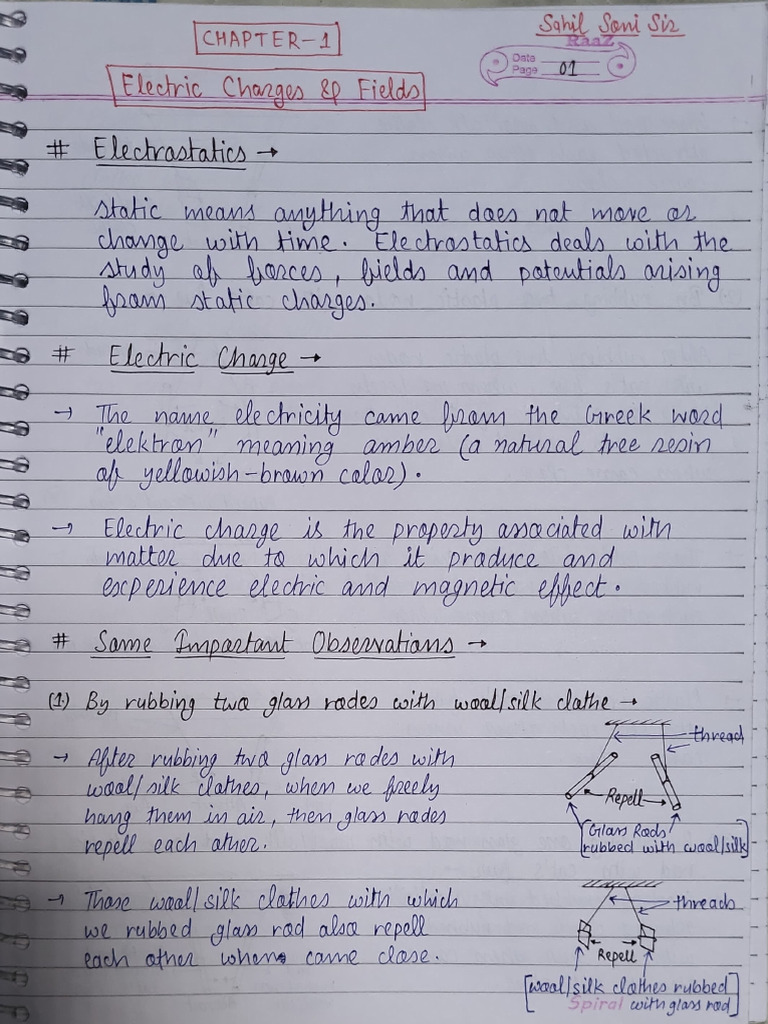 Sahil Soni Sir
CHAPTER-1
RaaZ
Date
Page 01
Electric Charges & Fields
# Electrostatics →
static means anything that does not move or
change with time. Electrostatics deals with the
study of forces, fields and potentials arising
from static charges.
# Electric Charge →
→ The name electricity came from the Greek word
"elektron" meaning amber (a natural tree resin
of yellowish-brown color).
→ Electric charge is the property associated with
matter due to which it produce and
experience electric and magnetic effect.
# Some Important Observations →
(1.) By rubbing two glass rodes with wool/silk clothe →
→ After rubbing two glass rodes with
wool/silk clothes, when we freely
hang them in air, then glass rodes
repell each other.
thread
Repell
[Glass Rods
rubbed with wool/silk]
→ Those wool/silk clothes with which
we rubbed glass rod also repell
each other when came close.
threads
Repell
[wool/silk clothes rubbed
with glass rod]
Spiral